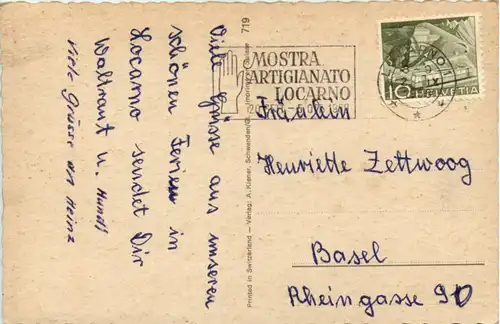 Viele Grüsse aus unseren
schönen Ferien in
Locarno sendet Dir
Waltraut u.
Viele Grüsse an Heinz
719
Printed in Switzerland – Verlag: A. Kiener, Schwanden/Gl.
MOSTRA
ARTIGIANATO
LOCARNO
10
HELVETIA
Fräulein
Henriette Zettwoog
Basel
Rheingasse 90